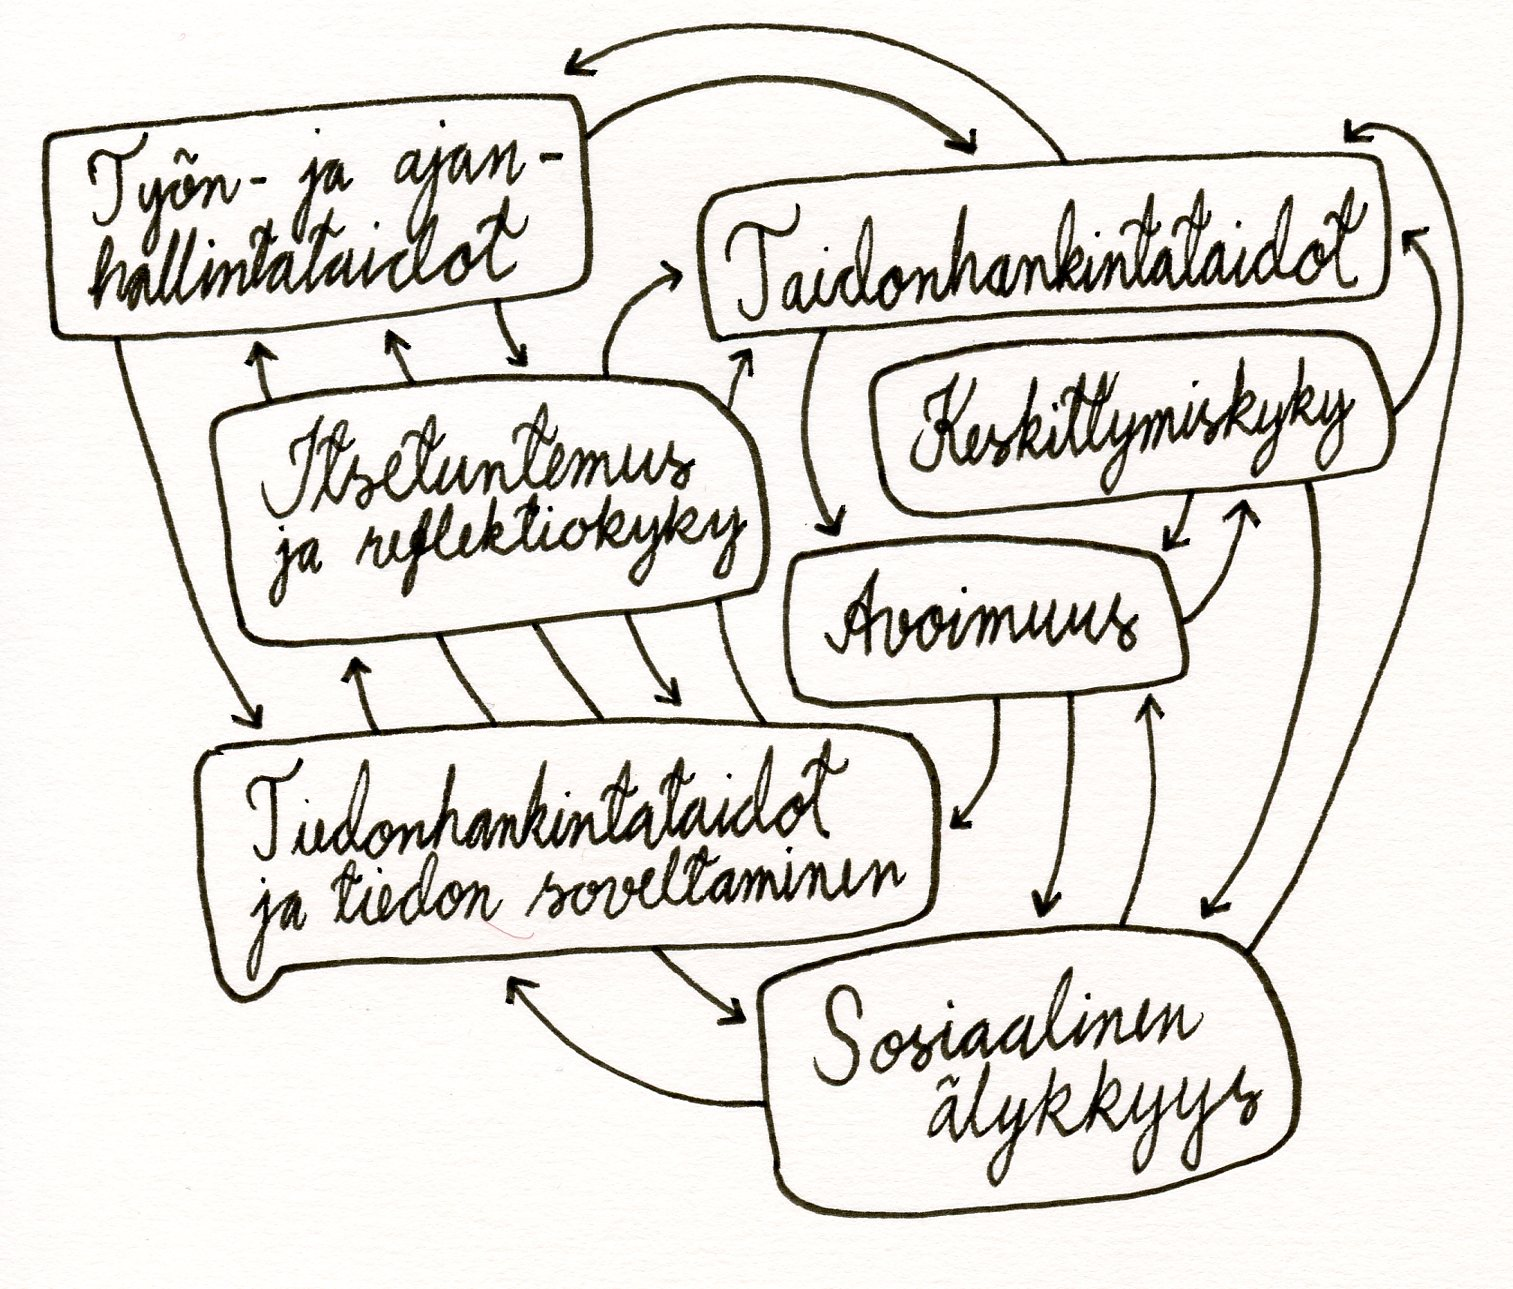 Työn- ja ajan-
hallintataidot
Taidonhankintataidot
Keskittymiskyky
Itsetuntemus
ja reflektiokyky
Avoimuus
Tiedonhankintataidot
ja tiedon soveltaminen
Sosiaalinen
älykkyys